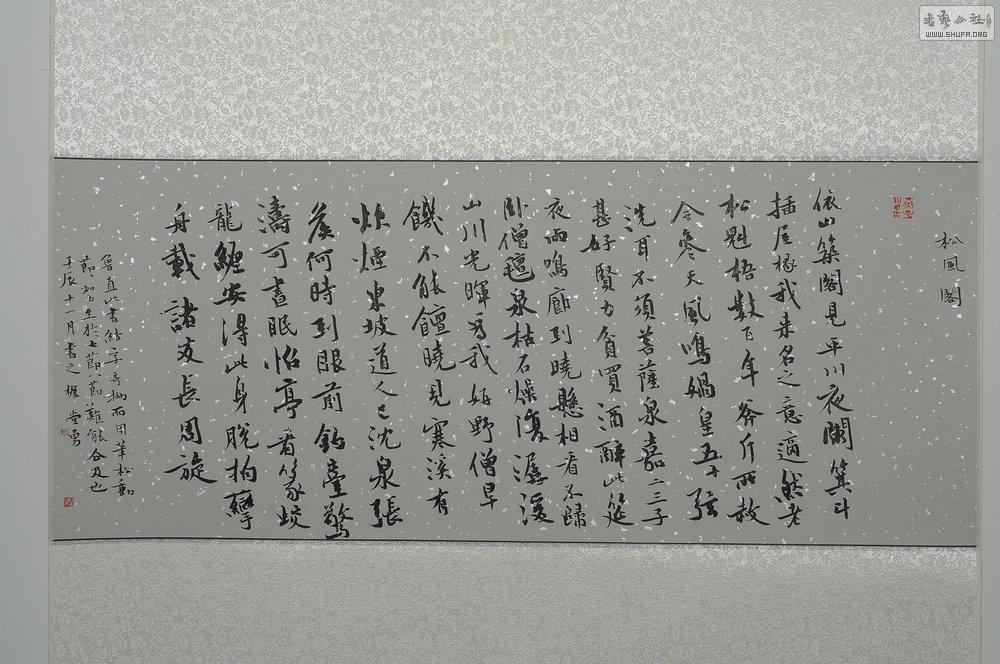 松風閣
依山築閣見平川夜闌箕斗
插屋椽我来名之意適然老
松魁梧數百年斧斤所赦
今參天風鳴媧皇五十弦
洗耳不須菩薩泉嘉二三子
甚好賢力貧買酒醉此筵
夜雨鳴廊到曉懸相看不歸
卧僧氈泉枯石燥復潺湲
山川光暉為我妍野僧旱
饑不能饘曉見寒溪有
炊煙東坡道人已沈泉張
侯何時到眼前釣臺驚
濤可晝眠怡亭看篆蛟
龍纏安得此身脫拘攣
舟載諸友長周旋
魯直此書結字奇拗而用筆松動
節如力生於七節節難能合及也
壬辰十一月書之 堂勇
WWW.SHUFA.ORG